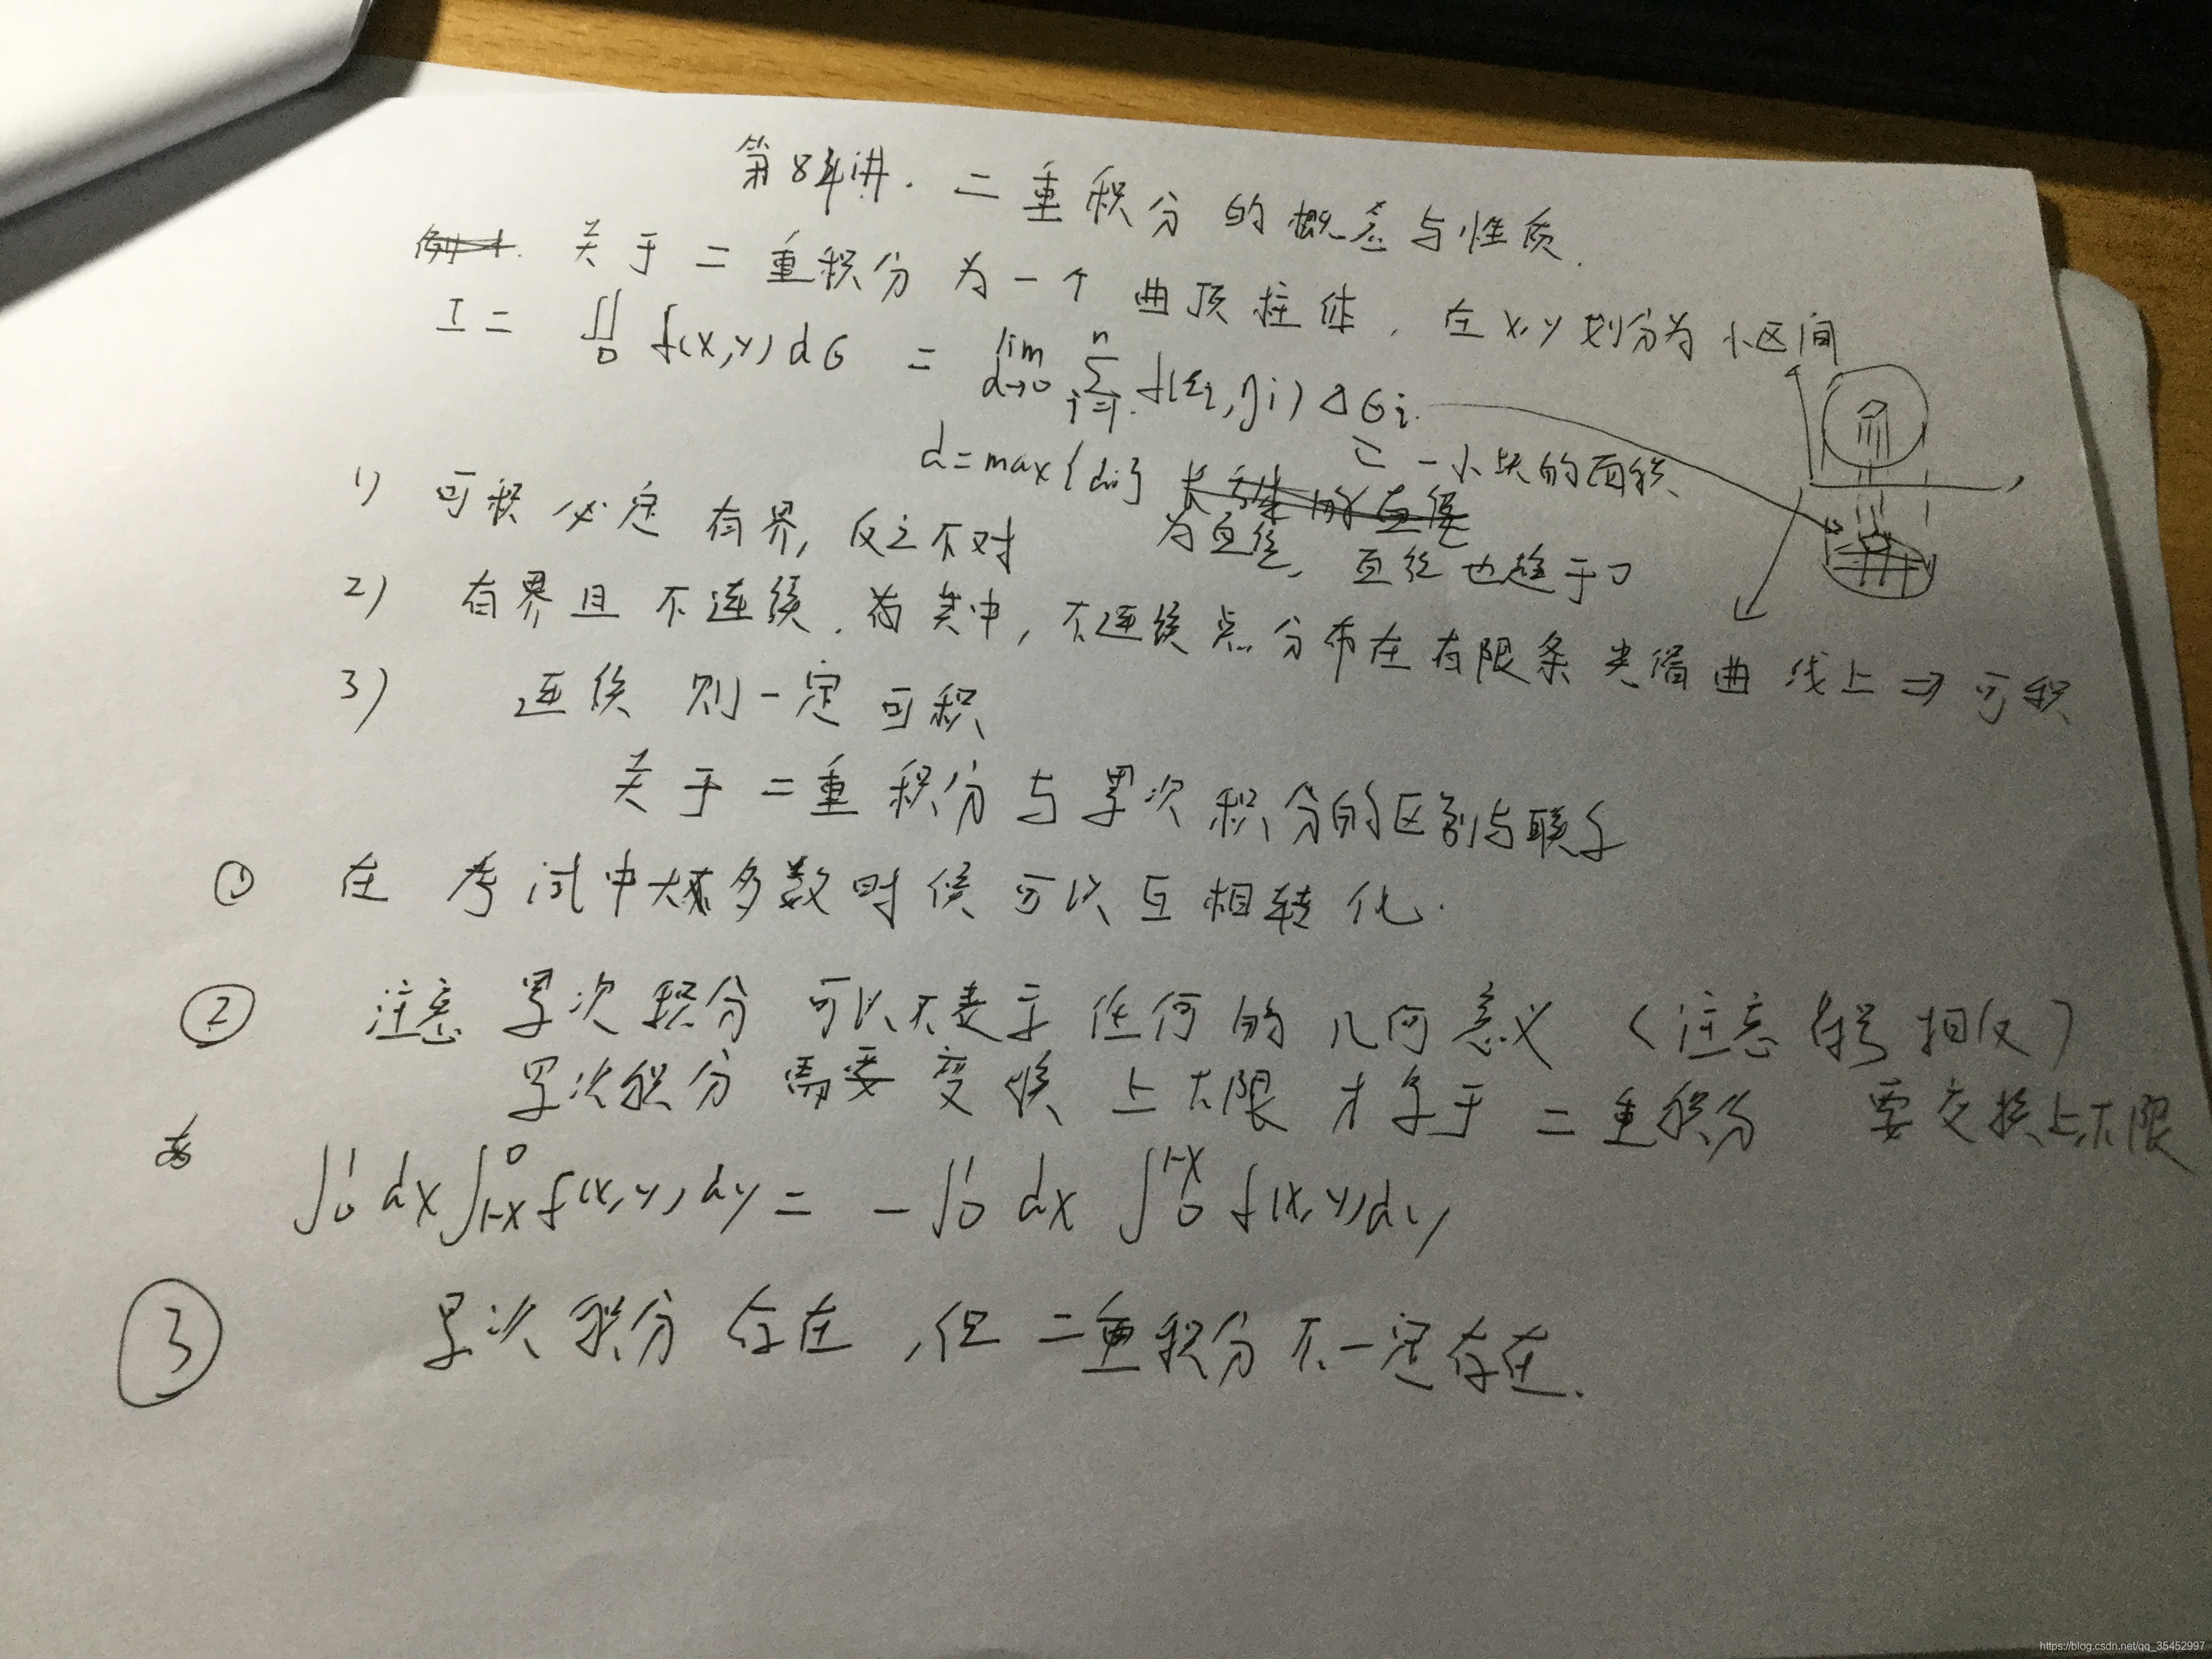 第84讲. 二重积分的概念与性质.
关于二重积分为一个曲顶柱体, 在x,y划分为小区间
I = ∬_D f(x,y)dσ = lim_{d→0} Σ_{i=1}^{n} f(ξi,ηi)Δσi.
一小块的面积
d=max{di}
为直径, 直径也趋于0
1) 可积必定有界, 反之不对
2) 有界且不连续. 其中, 不连续点分布在有限条光滑曲线上 ⇒ 可积
3) 连续则一定可积
关于二重积分与累次积分的区别与联系
① 在考试中大多数时候可以互相转化.
② 注意累次积分可以不表示任何的几何意义 (注意符号相反)
累次积分需要变换上下限才等于二重积分 要交换上下限
∫_0^1 dx ∫_{1-x}^0 f(x,y)dy = -∫_0^1 dx ∫_0^{1-x} f(x,y)dy
③ 累次积分存在, 但二重积分不一定存在.
https://blog.csdn.net/qq_35452997